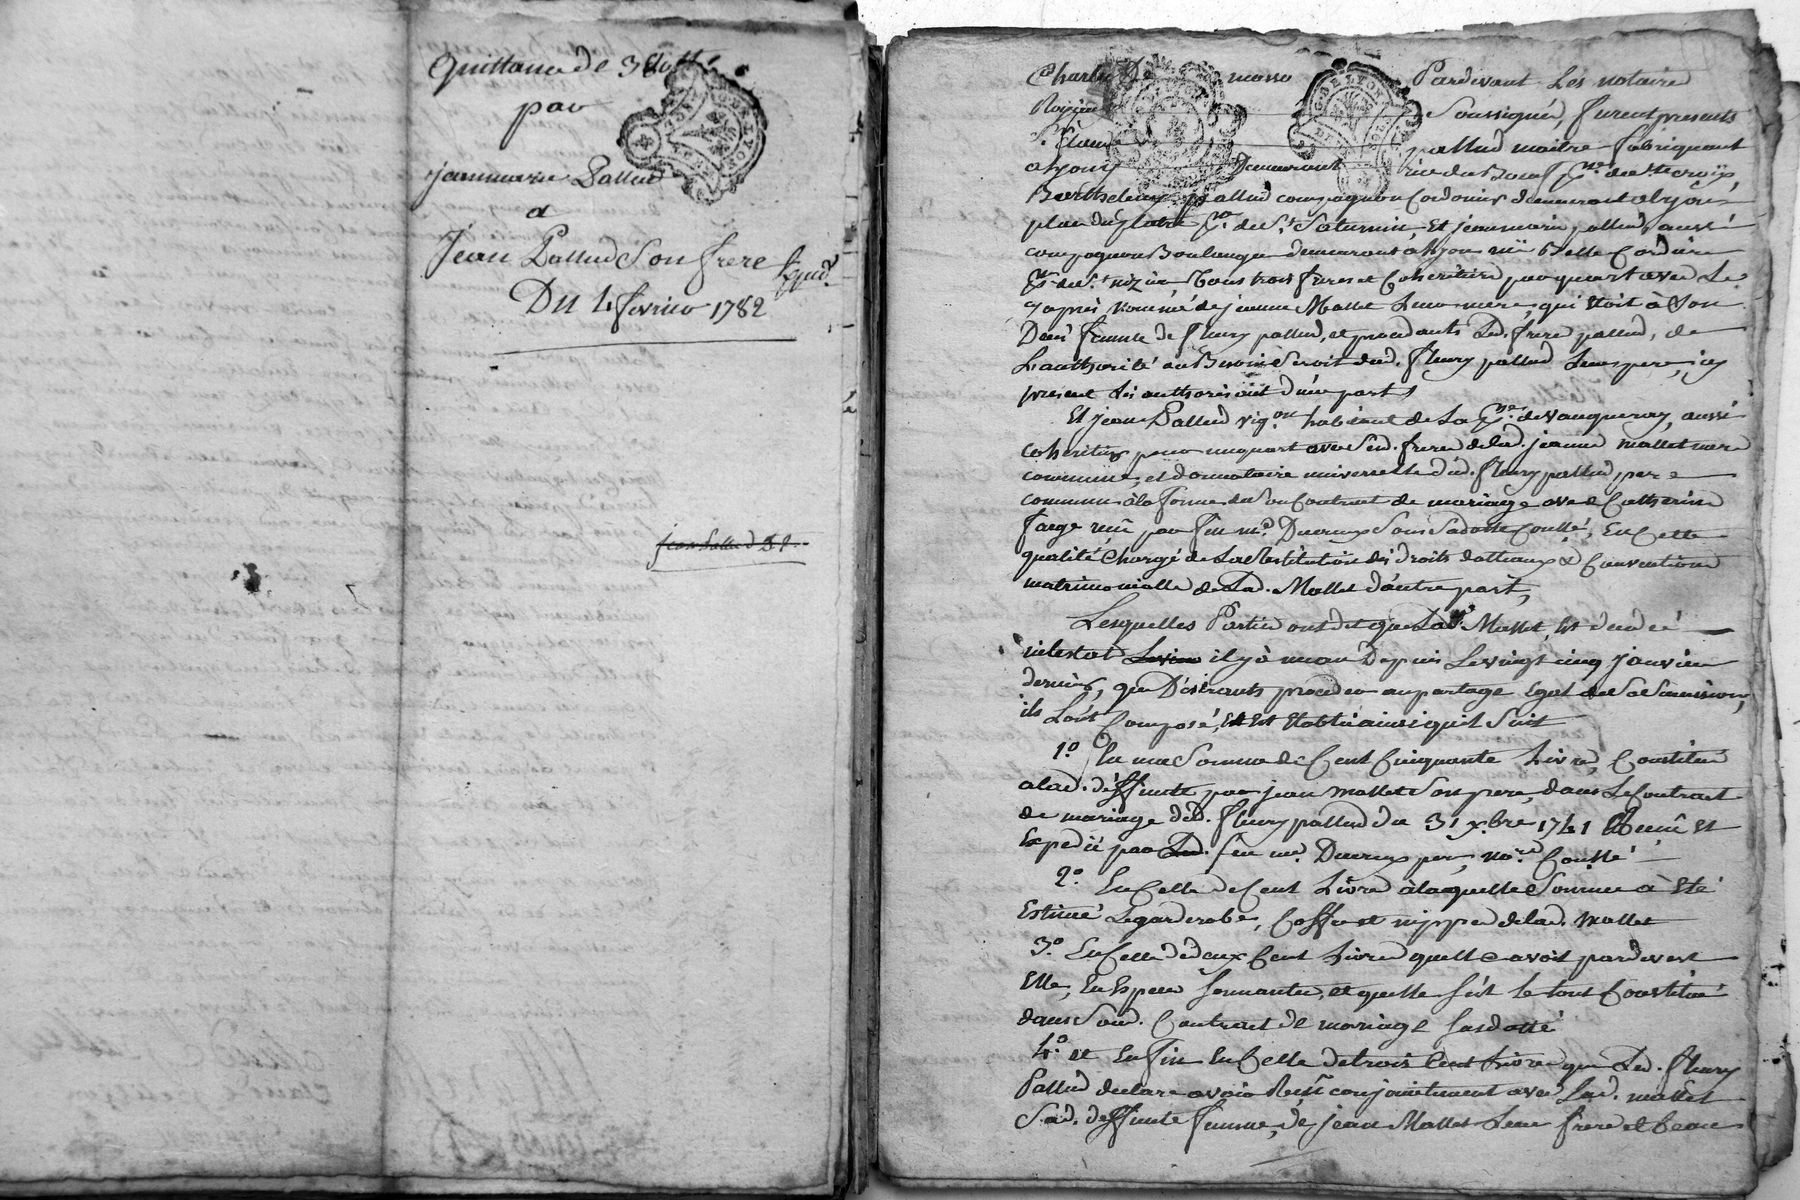 Quittance de 3
par
jeanmarie Pallud
a
Jean Pallud Son frere
Expéd.
Du 4 fevrier 1782
jean Pallud
G. DE LYON
Pardevant Les notaire
Soussigné, furent presents
pallud maitre fabriquant
a Lyon Demeurant rue du Boeuf Psse. de Ste. croix
Barthelemy pallud compagnon Cordonnier demeurant a Lyon
place du platre Psse. de St. Saturnin, Et jeanmarie pallud, aussi
compagnon Boulanger demeurant a Lyon ruë Belle Cordiere
Psse. de St. nizier, Tous trois freres et Coheritiers pour quart avec Le
cyaprès nommé de jeanne Mallet Leur mere, qui Etoit à Son
Deces femme de fleury pallud, et procedants Led. freres pallud, de
L'authorité au Besoin Seroit dud. fleury pallud Leur pere, icy
present Les authorisant d'une part
Et jean Pallud vig.on habitant de La Psse. de vaugneray, aussi
coheritier pour un quart avec Sed. freres de lad. jeanne mallet mere
commune, et donnataire universelle dud. fleury pallud, pere
commun à la forme de Son Contract de mariage avec Catherine
farge reçu par feu me. Ducreux Sous Sa datte Coullé, En Cette
qualité Chargé de La Restitution des droits dottaux & Conventions
matrimonialle de Lad. Mallet d'autre part,
Lesquelles Parties ont dit que Lad. Mallet, Est decedée
intestat il y à un an Depuis Le vingt cinq janvier
dernier, que Désirants proceder au partage Egal de Sa Succession,
ils L'ont Composé, Et Est Etablie ainsi qu'il Suit
1.° En une Somme de Cent Cinquante Livres, Constituée
a lad. déffunte par jean mallet Son pere, dans Le Contract
de mariage dud. fleury pallud du 31 xbre 1741 Reçu et
Expedié par feu me. Ducreux pere, no.re Coullé
2.° En Celle de Cent Livres à laquelle Somme à Eté
Estimé Le garderobe, Coffre et nippes de lad. Mallet
3.° En Celle de deux Cent Livres quelle avoit pardevert
Elle, En Especes Sonnantes, et quelle S'est le tout Constitué
dans Sond. Contract de mariage Susdatté
4.° et Enfin En Celle de trois Cent Livres que Led. fleury
Pallud declare avoir Reçu conjointement avec Lad. mallet
Sad. deffunte femme, de jean Mallet Leur frere et beau